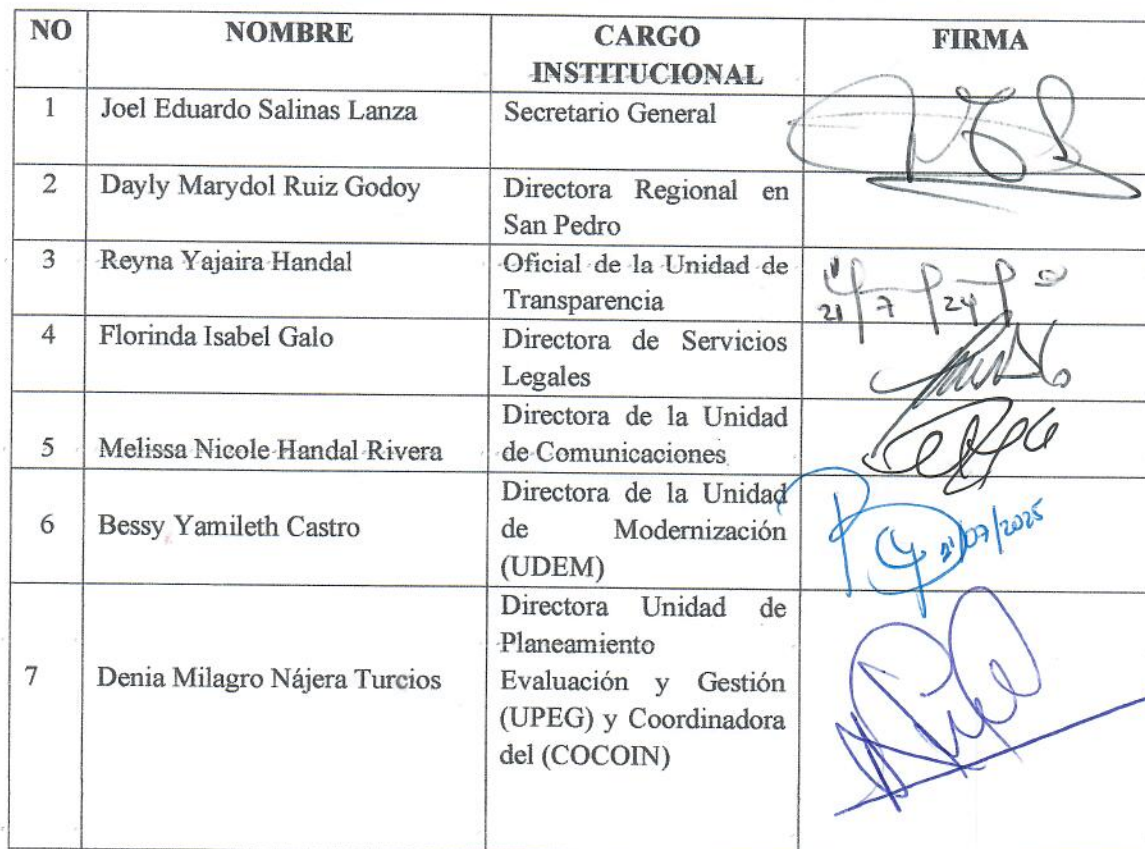 NO NOMBRE CARGO INSTITUCIONAL FIRMA
1 Joel Eduardo Salinas Lanza Secretario General
2 Dayly Marydol Ruiz Godoy Directora Regional en
San Pedro
3 Reyna Yajaira Handal Oficial de la Unidad de
Transparencia
21 7 24
4 Florinda Isabel Galo Directora de Servicios
Legales
5 Melissa Nicole Handal Rivera Directora de la Unidad
de Comunicaciones
6 Bessy Yamileth Castro Directora de la Unidad
de Modernización
(UDEM)
21/07/2025
7 Denia Milagro Nájera Turcios Directora Unidad de
Planeamiento
Evaluación y Gestión
(UPEG) y Coordinadora
del (COCOIN)